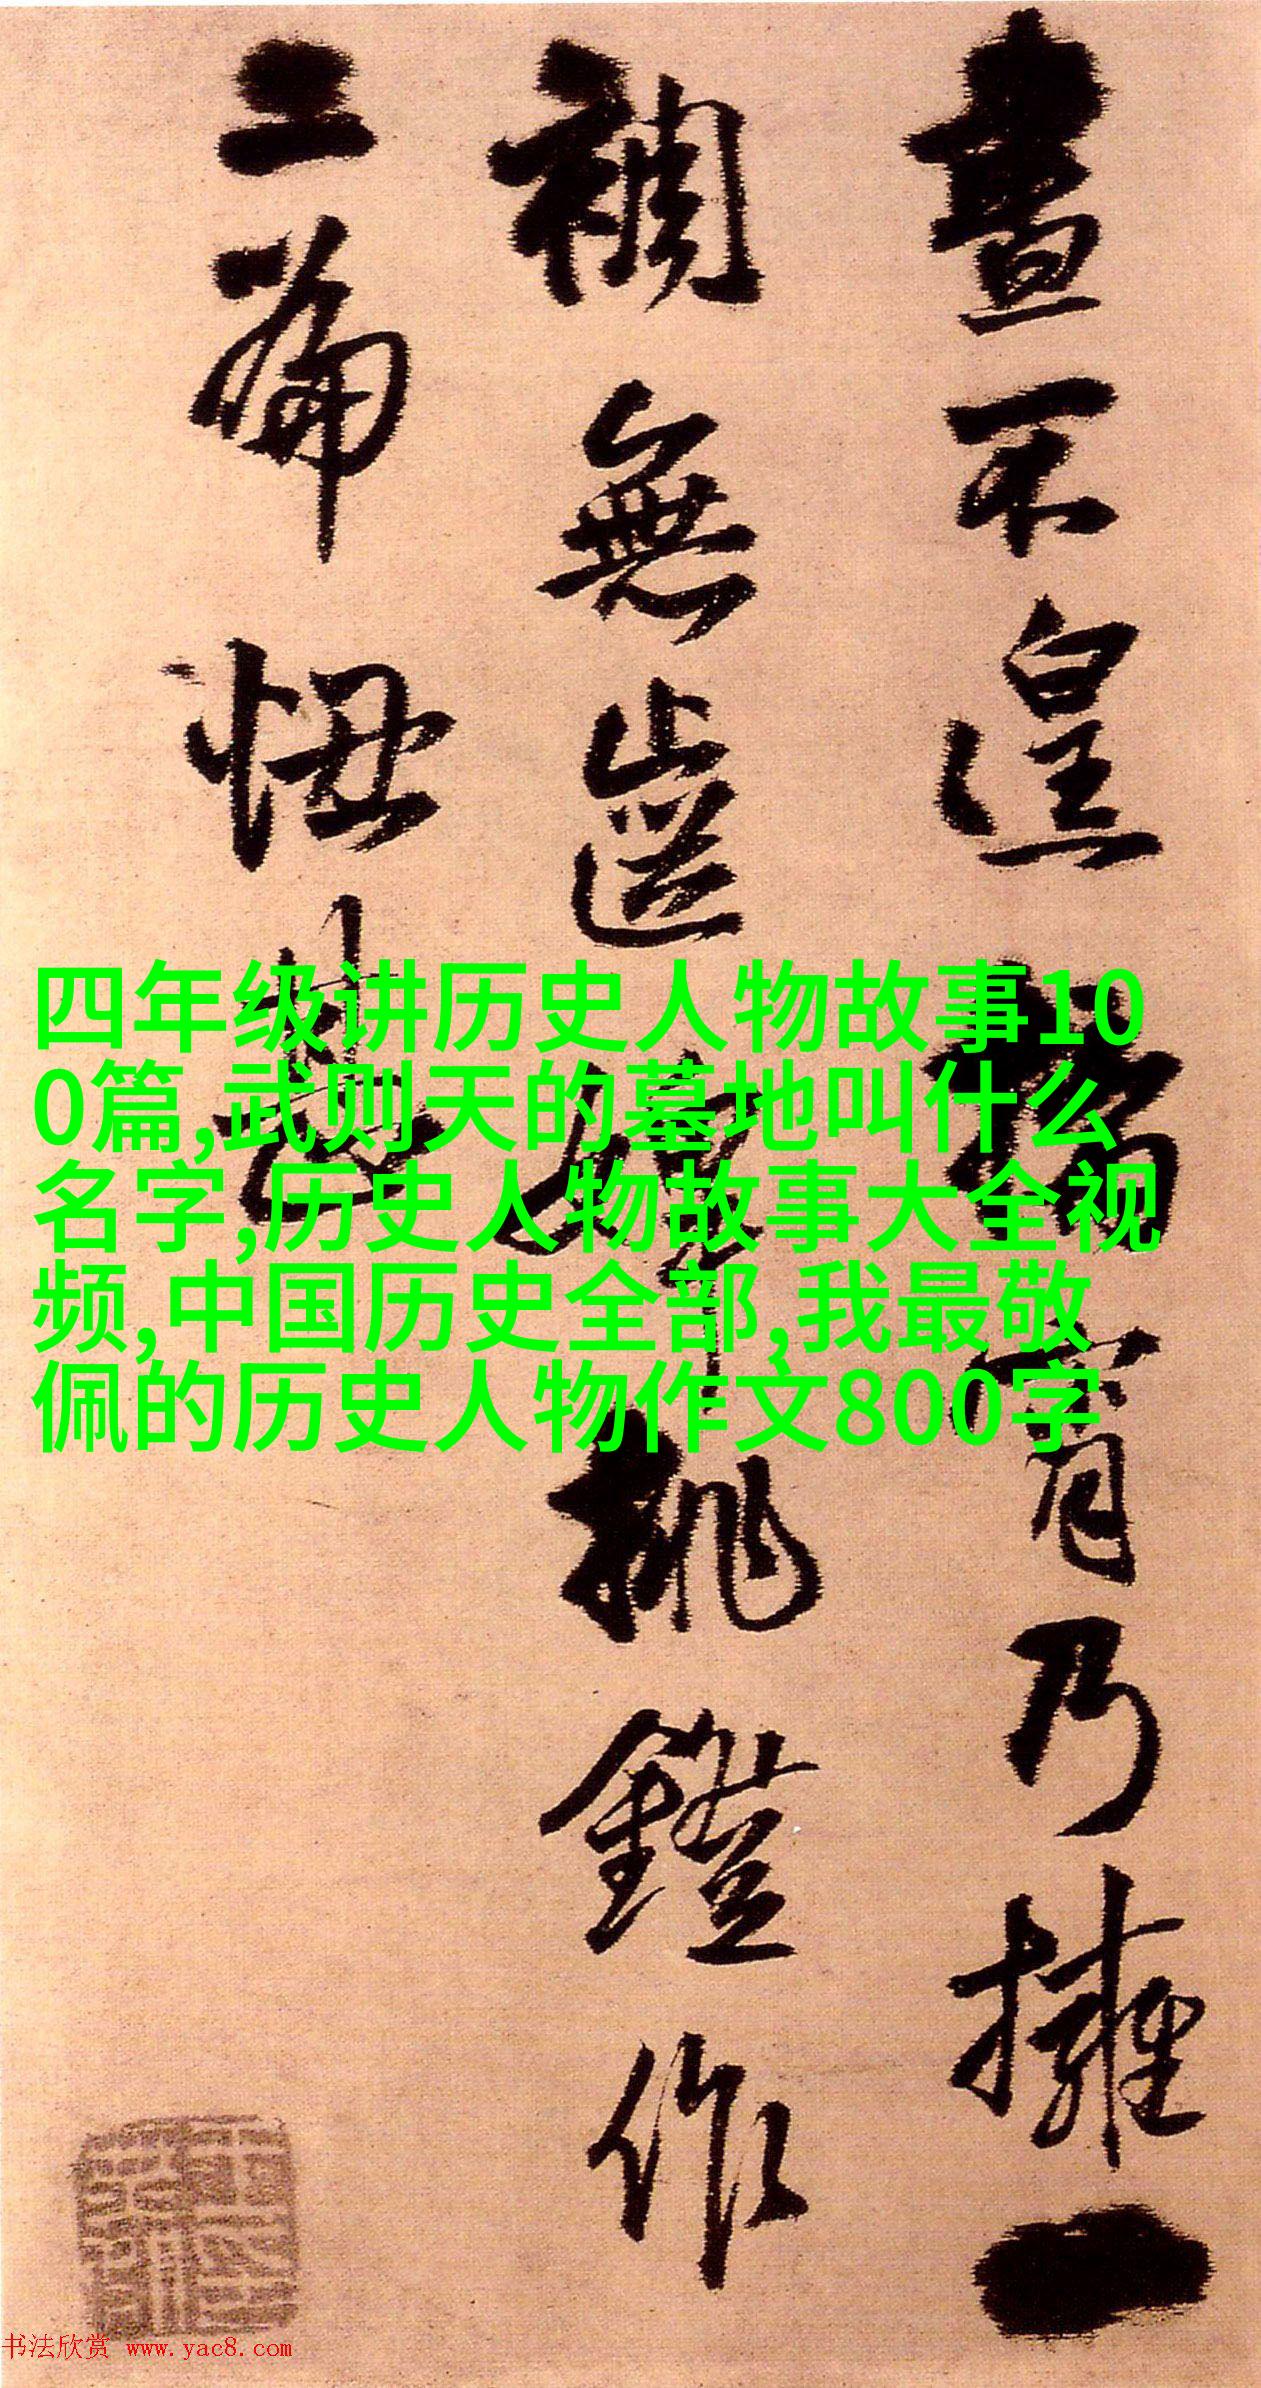 晝不遑宵乃擁一
裯無齒婢挑鐙作
篇
四年级讲历史人物故事10
0篇,武则天的墓地叫什么
名字,历史人物故事大全视
频,中国历史全部,我最敬
佩的历史人物作文800字
书法欣赏 www.yac8.com